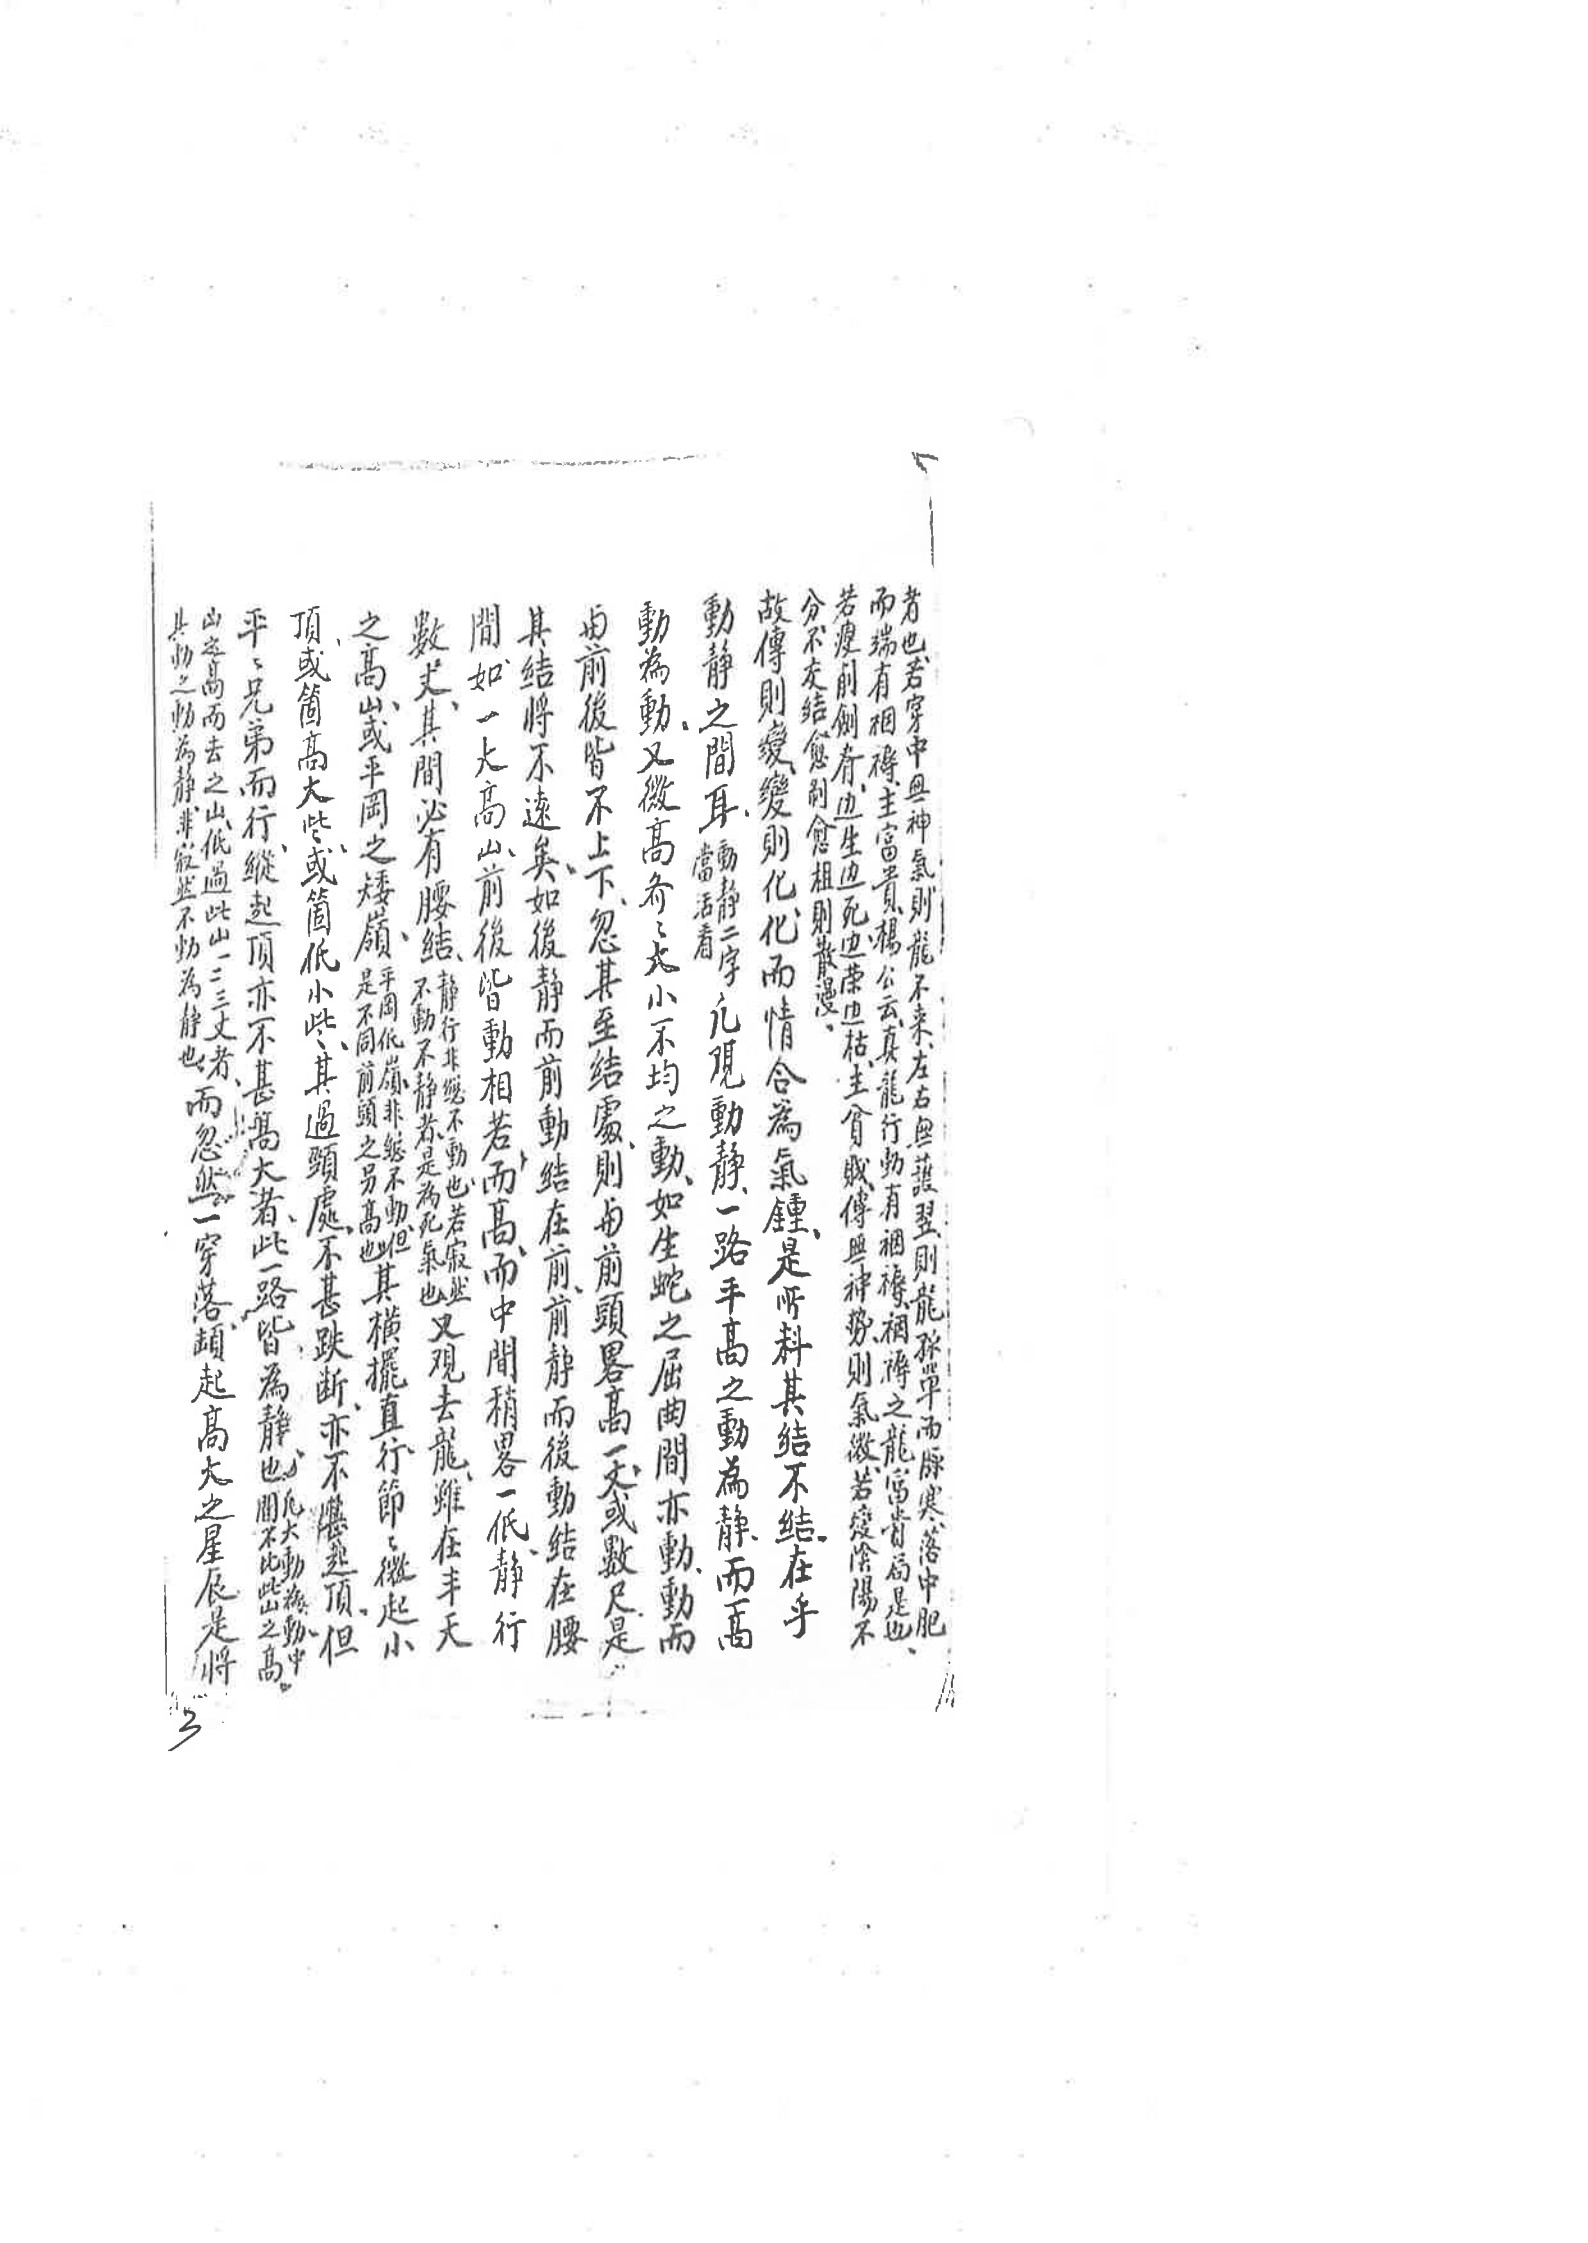 者也、若穿中無神氣則龍不来、左右無護翌、則龍孤單而脉寒、落中肥
而端有裀褥、主富貴、楊公云、真龍行動有裀褥、裀褥之龍富貴局是也、
若瘦削劍脊、边生边死、边荣边枯、主貧賎、傳無神势、則氣微、若變陰陽不
分、不交結、愈剐愈粗、則散漫、
故傳則變、變則化、化而情合為氣鍾、是所料其結不結、在乎
動静之間耳、動静二字當活看凡覌動静、一路平高之動為静、而高
動為動、又微高夅〻大小不均之動、如生蛇之屈曲間亦動、動而
与前後皆不上下、忽其至結處、則与前頭畧高一丈、或數尺、是
其結將不遠矣、如後静而前動結在前、前静而後動結在腰
間、如一大高山、前後皆動相若、而高、而中間稍畧一低、静行
數丈、其間必有腰結、静行非總不動也、若寂然不動不静者、是為死氣也又覌去龍、雖在半天
之高山、或平岡之矮嶺、平岡低嶺、非總不動、但是不同前頭之另高也其橫擺直行、節〻微起小
頂、或箇高大些、或箇低小些、其過頸處、不甚跌断、亦不甚起頂、但
平〻兄弟而行、縱起頂亦不甚高大者、此一路皆為静也、凡大動為動、中間不比此山之高
山定高而去之山、低過此山一二三丈者、其動之動為静、非寂然不動為静也、而忽然一穿落、頓起高大之星辰、是將
3